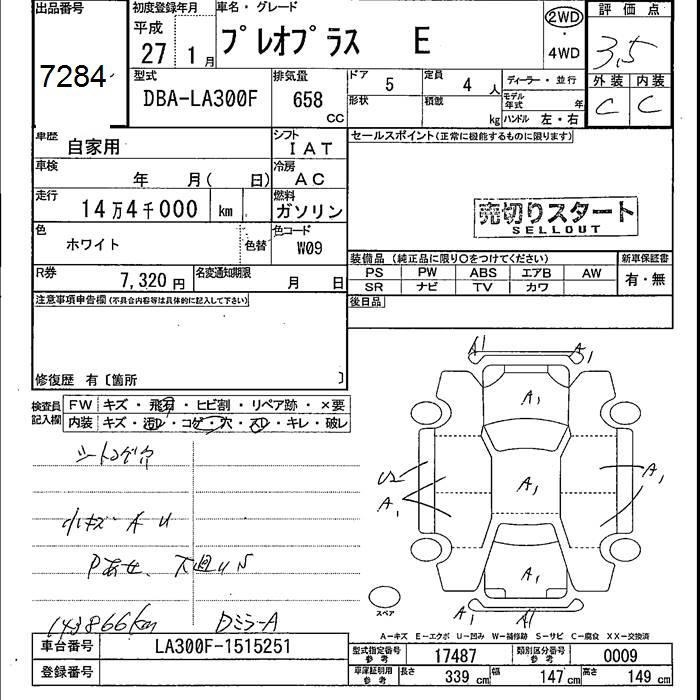 出品番号
7284
初度登録年月
平成
27 1月
車名・グレード
プレオプラス E
2WD
・
4WD
評価点
3,5
外装 内装
C C
型式
DBA-LA300F
排気量
658
CC
ドア 5
定員 4人
ディーラー・並行
形状
積載 kg
モデル年式 年
ハンドル 左・右
車歴
自家用
シフト
IAT
セールスポイント(正常に機能するものに限ります)
車検
年 月( 日)
冷房
AC
走行
14万4千000 km
燃料
ガソリン
売切りスタート
SELLOUT
色
ホワイト
色替
色コード
W09
装備品(純正品に限り○をつけてください)
新車保証書
PS PW ABS エアB AW
SR ナビ TV カワ
有・無
R券
7,320円
名変通知期限
月 日
後日品
注意事項申告欄(不具合内容等は具体的に記入して下さい)
修復歴 有〔箇所 〕
検査員
記入欄
FW キズ・飛石・ヒビ割・リペア跡・×要
内装 キズ・汚レ・コゲ・穴・スレ・キレ・破レ
シートコゲ穴
小キズ A U
Pあせ、下廻りS
143866km
Dミラ-A
A1 A1
A1
U2
A1
A1
A1
A1
A1 A1
スペア
A-キズ E-エクボ U-凹み W-補修跡 S-サビ C-腐食 XX-交換済
車台番号
LA300F-1515251
登録番号
型式指定番号
参考
17487
類別区分番号
参考
0009
車庫証明用
参考
長さ 339cm
幅 147cm
高さ 149cm